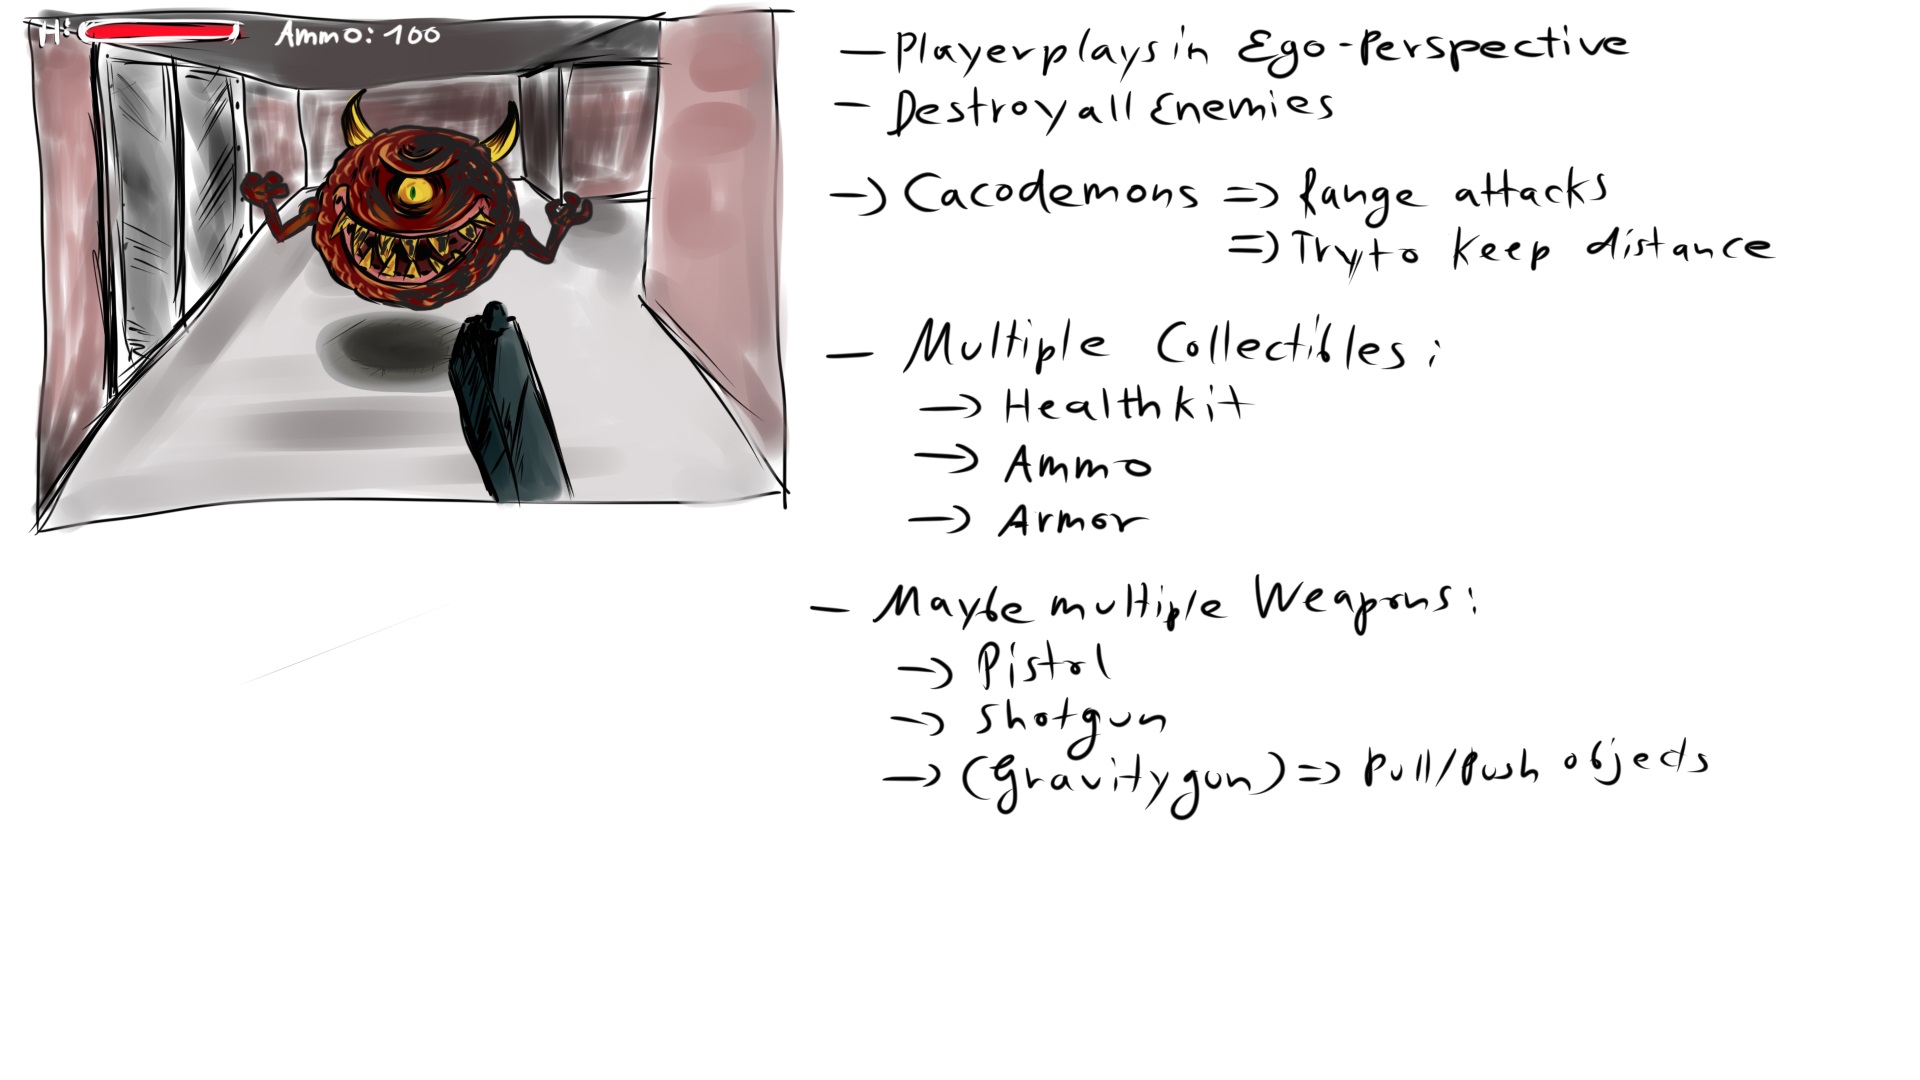 H:
Ammo: 100
- Player plays in Ego-Perspective
- Destroy all Enemies
-> Cacodemons => Range attacks
=> Try to keep distance
- Multiple Collectibles:
-> Healthkit
-> Ammo
-> Armor
- Maybe multiple Weapons:
-> Pistol
-> Shotgun
-> (Gravitygun) => Pull/Push objects